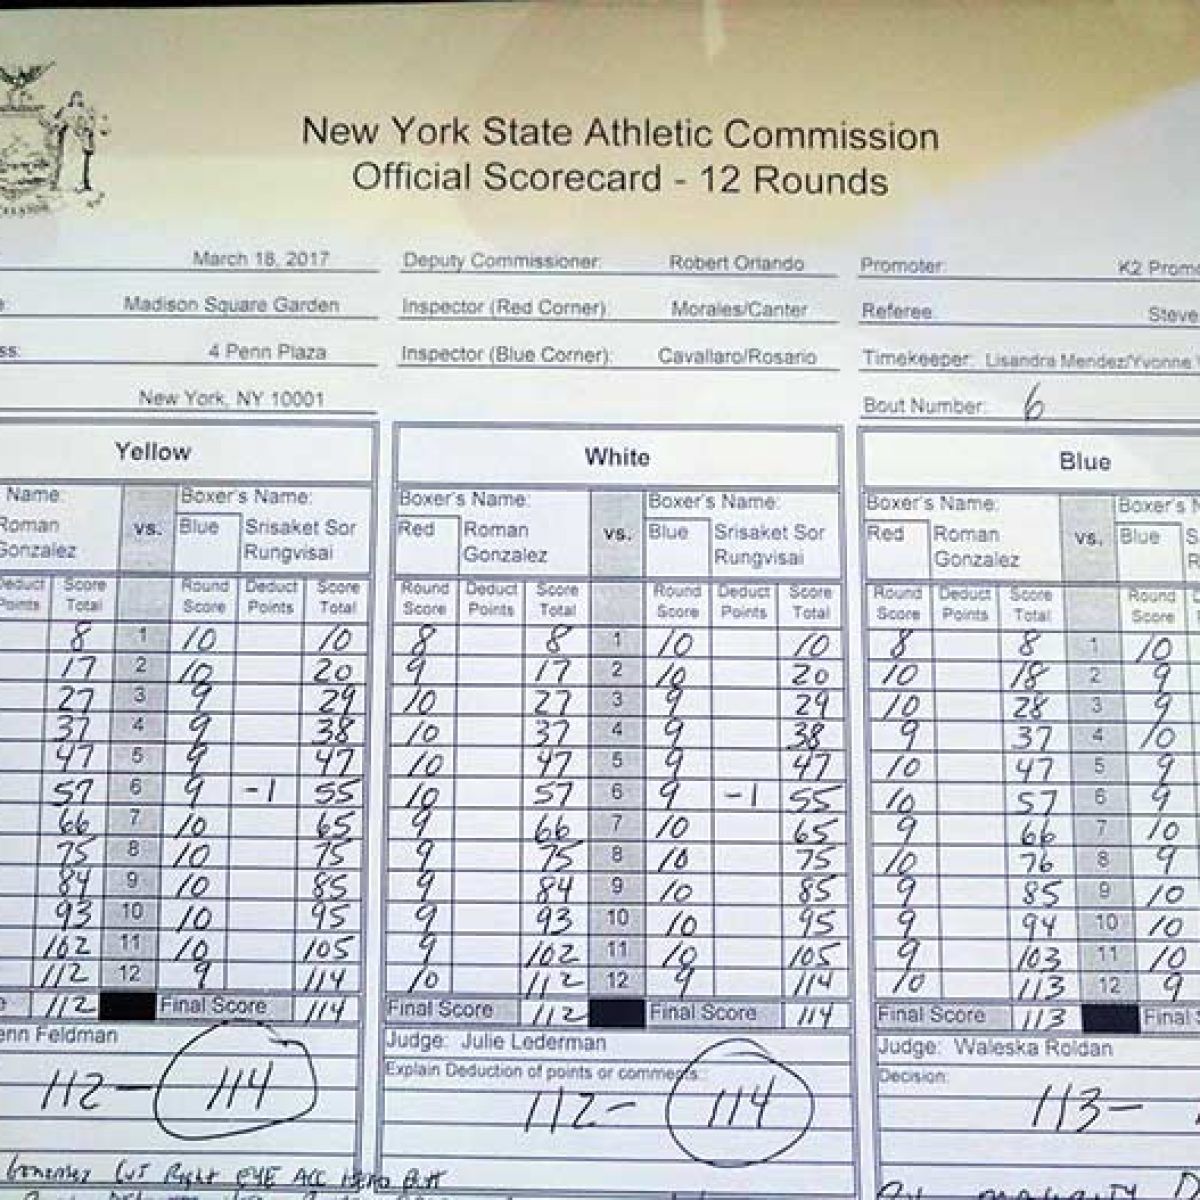 New York State Athletic Commission
Official Scorecard - 12 Rounds
March 18, 2017 Deputy Commissioner: Robert Orlando Promoter: K2
Madison Square Garden Inspector (Red Corner): Morales/Canter Referee: Steve
4 Penn Plaza Inspector (Blue Corner): Cavallaro/Rosario Timekeeper: Lisandra Mendez/Yvonne
New York, NY 10001 Bout Number: 6
Yellow White Blue
Name: Boxer's Name: Boxer's Name: Boxer's Name: Boxer's Name: Boxer's
Roman vs. Blue Srisaket Sor Red Roman vs. Blue Srisaket Sor Red Roman vs. Blue
Gonzalez Rungvisai Gonzalez Rungvisai Gonzalez
Deduct Score Round Deduct Score Round Deduct Score Round Deduct Score Round Deduct Score Round
Points Total Score Points Total Score Points Total Score Points Total Score Points Total Score
8 1 10 10 8 8 1 10 10 8 8 1 10
17 2 10 20 9 17 2 10 20 10 18 2 9
27 3 9 29 10 27 3 9 29 10 28 3 9
37 4 9 38 10 37 4 9 38 9 37 4 10
47 5 9 47 10 47 5 9 47 10 47 5 9
57 6 9 -1 55 10 57 6 9 -1 55 10 57 6 9
66 7 10 65 9 66 7 10 65 9 66 7 10
75 8 10 75 9 75 8 10 75 10 76 8 9
84 9 10 85 9 84 9 10 85 9 85 9 10
93 10 10 95 9 93 10 10 95 9 94 10 10
102 11 10 105 9 102 11 10 105 9 103 11 10
112 12 9 114 10 112 12 9 114 10 113 12 9
112 Final Score 114 Final Score 112 Final Score 114 Final Score 113 Final
Feldman Judge: Julie Lederman Judge: Waleska Roldan
Explain Deduction of points or comments: Decision:
112 - 114 112 - 114 113 -
Gonzalez Cut Right EYE ACC HEAD Butt